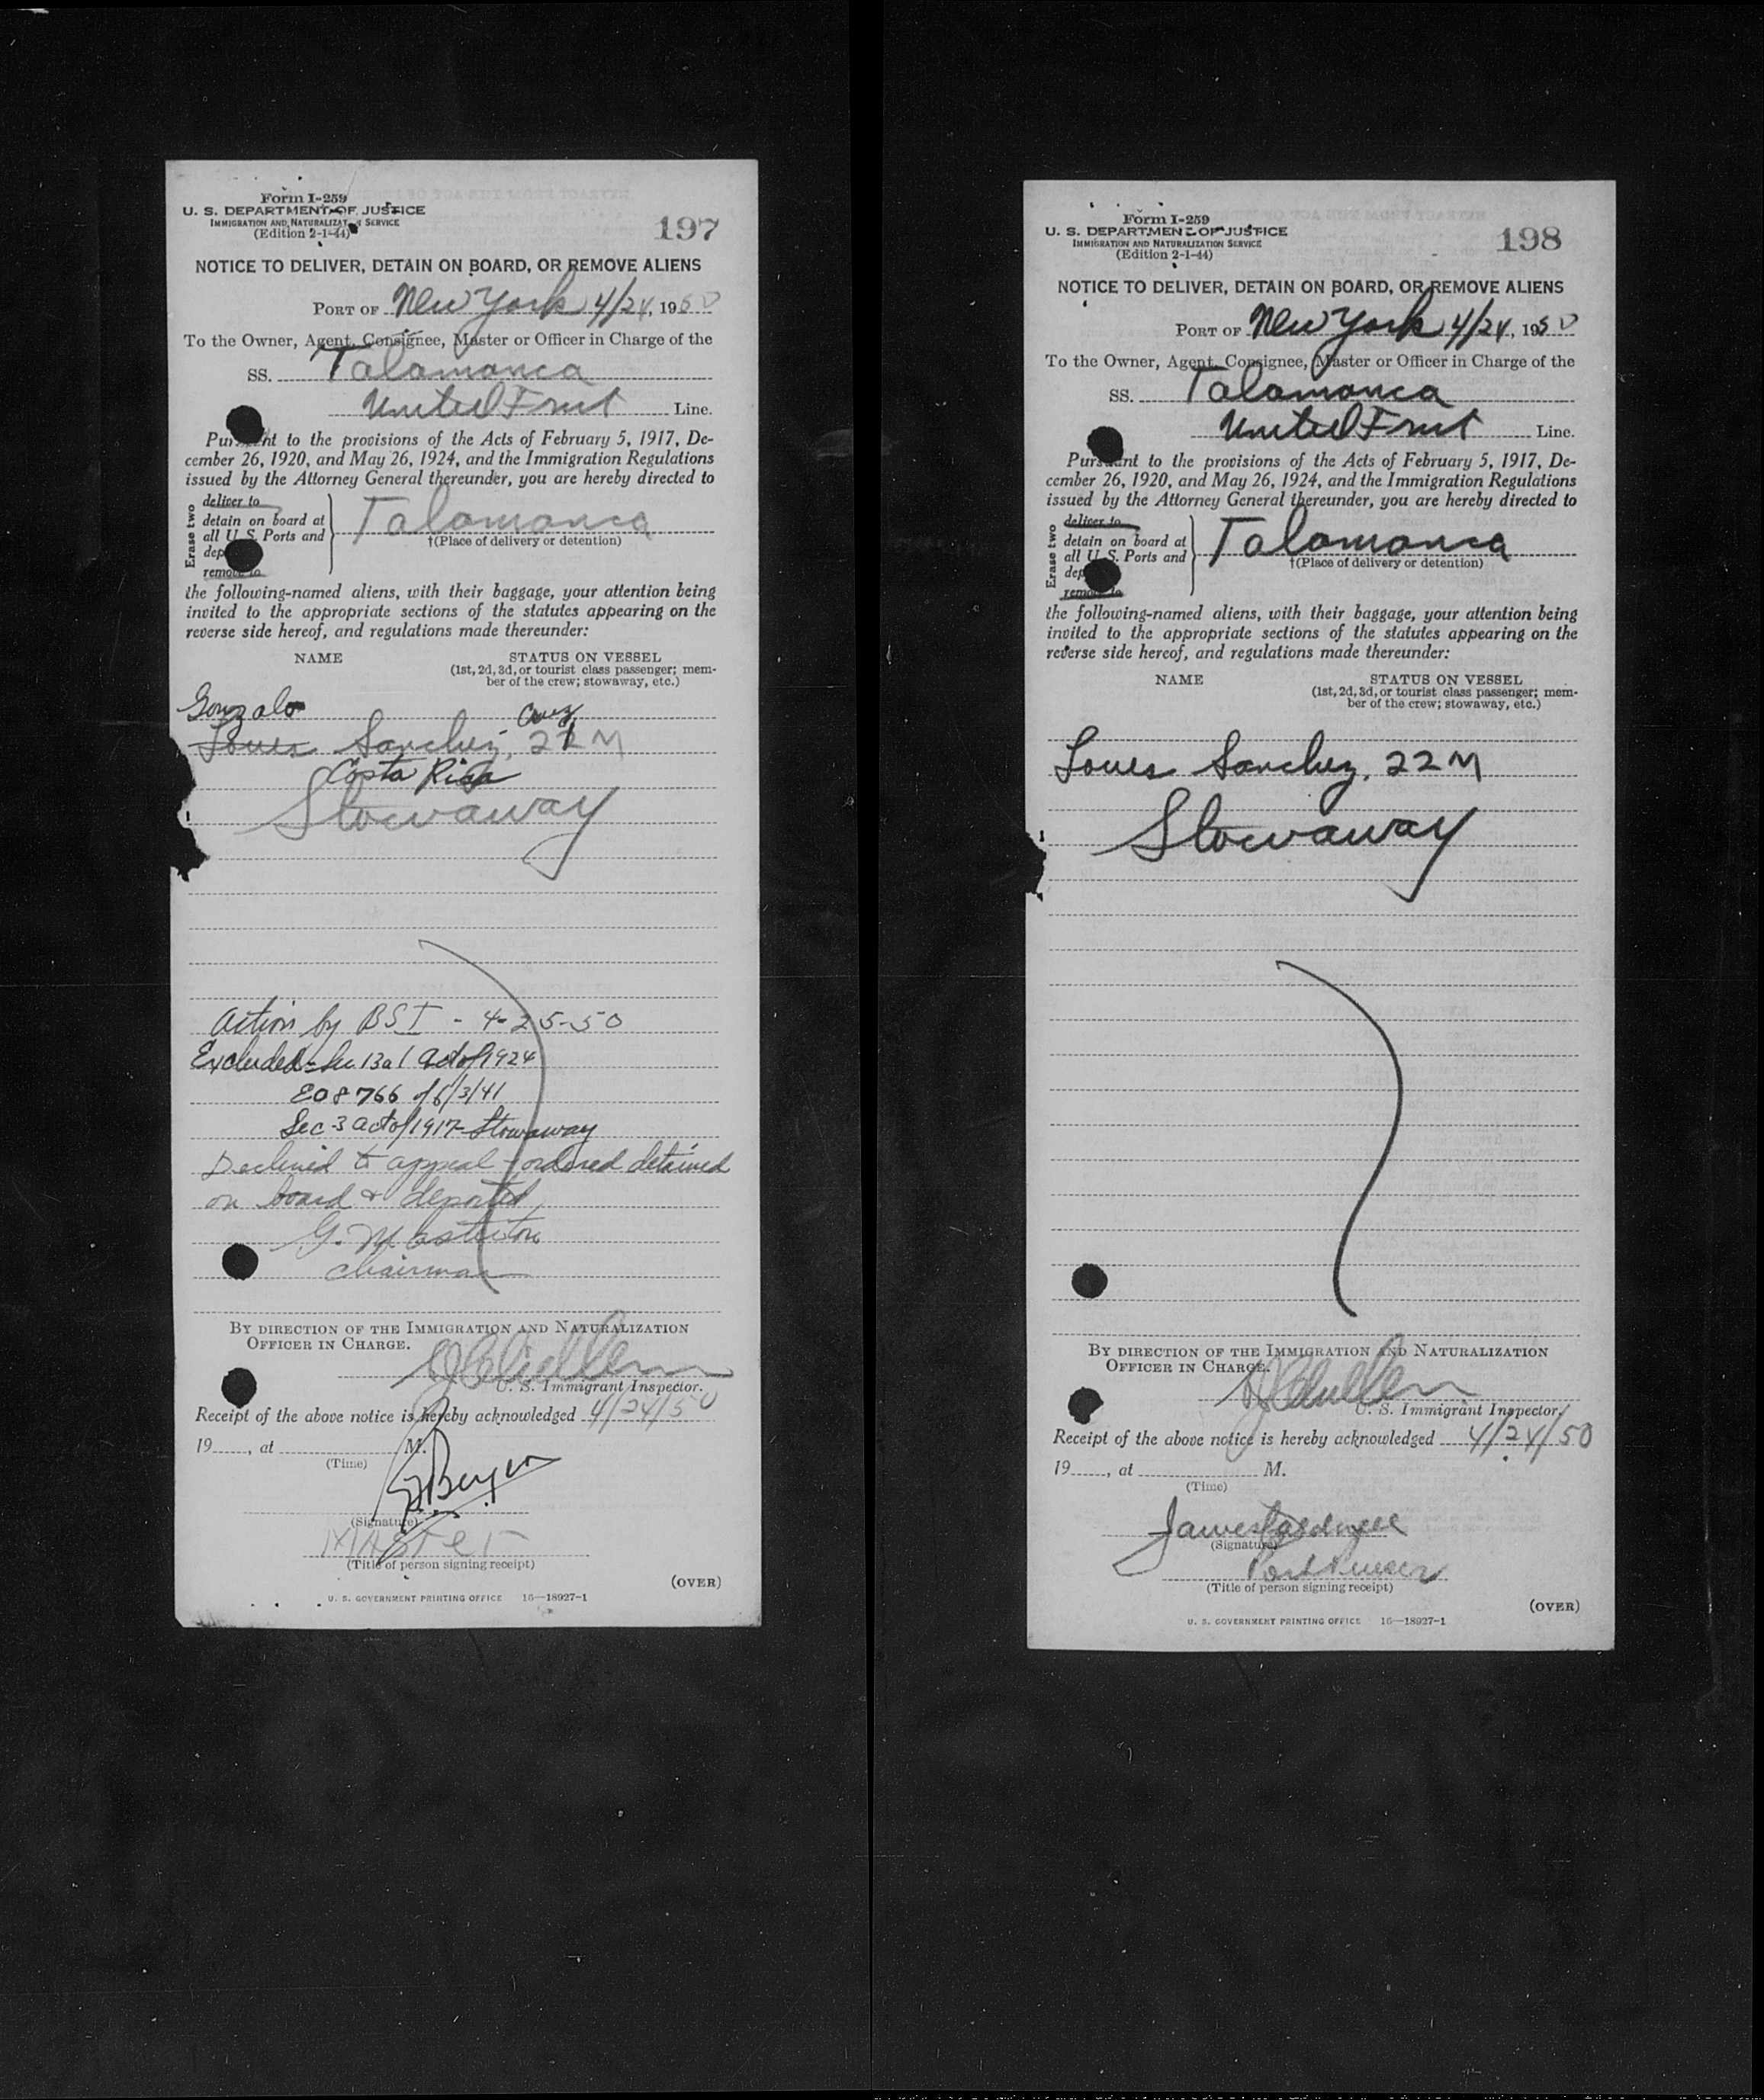 Form I-259
U. S. DEPARTMENT OF JUSTICE
IMMIGRATION AND NATURALIZATION SERVICE
(Edition 2-1-44)
197
NOTICE TO DELIVER, DETAIN ON BOARD, OR REMOVE ALIENS
PORT OF New York 4/24, 1950
To the Owner, Agent, Consignee, Master or Officer in Charge of the
SS. Talamanca
United Fruit Line.
Pursuant to the provisions of the Acts of February 5, 1917, De-
cember 26, 1920, and May 26, 1924, and the Immigration Regulations
issued by the Attorney General thereunder, you are hereby directed to
Erase two
deliver to
detain on board at
all U. S. Ports and
dep
remove to
Talamanca
†(Place of delivery or detention)
the following-named aliens, with their baggage, your attention being
invited to the appropriate sections of the statutes appearing on the
reverse side hereof, and regulations made thereunder:
NAME STATUS ON VESSEL
(1st, 2d, 3d, or tourist class passenger; mem-
ber of the crew; stowaway, etc.)
Gonzalo Cruz
Loues Sanchez, 22 M
Costa Rica
Stowaway
Action by BSI - 4-25-50
Excluded - Sec. 13a1 Act of 1924
EO 8766 of 6/3/41
Sec 3 Act of 1917 - Stowaway
Declined to appeal - ordered detained
on board & deported
G. M.
Chairman
BY DIRECTION OF THE IMMIGRATION AND NATURALIZATION
OFFICER IN CHARGE.
U. S. Immigrant Inspector.
Receipt of the above notice is hereby acknowledged 4/24/50
19 , at M.
(Time)
(Signature)
Master
(Title of person signing receipt)
(OVER)
U. S. GOVERNMENT PRINTING OFFICE 16—18927-1
Form I-259
U. S. DEPARTMENT OF JUSTICE
IMMIGRATION AND NATURALIZATION SERVICE
(Edition 2-1-44)
198
NOTICE TO DELIVER, DETAIN ON BOARD, OR REMOVE ALIENS
PORT OF New York 4/24, 1950
To the Owner, Agent, Consignee, Master or Officer in Charge of the
SS. Talamanca
United Fruit Line.
Pursuant to the provisions of the Acts of February 5, 1917, De-
cember 26, 1920, and May 26, 1924, and the Immigration Regulations
issued by the Attorney General thereunder, you are hereby directed to
Erase two
deliver to
detain on board at
all U. S. Ports and
dep
remove to
Talamanca
†(Place of delivery or detention)
the following-named aliens, with their baggage, your attention being
invited to the appropriate sections of the statutes appearing on the
reverse side hereof, and regulations made thereunder:
NAME STATUS ON VESSEL
(1st, 2d, 3d, or tourist class passenger; mem-
ber of the crew; stowaway, etc.)
Loues Sanchez, 22 M
Stowaway
BY DIRECTION OF THE IMMIGRATION AND NATURALIZATION
OFFICER IN CHARGE.
U. S. Immigrant Inspector.
Receipt of the above notice is hereby acknowledged 4/24/50
19 , at M.
(Time)
James
(Signature)
Port Purser
(Title of person signing receipt)
(OVER)
U. S. GOVERNMENT PRINTING OFFICE 16—18927-1